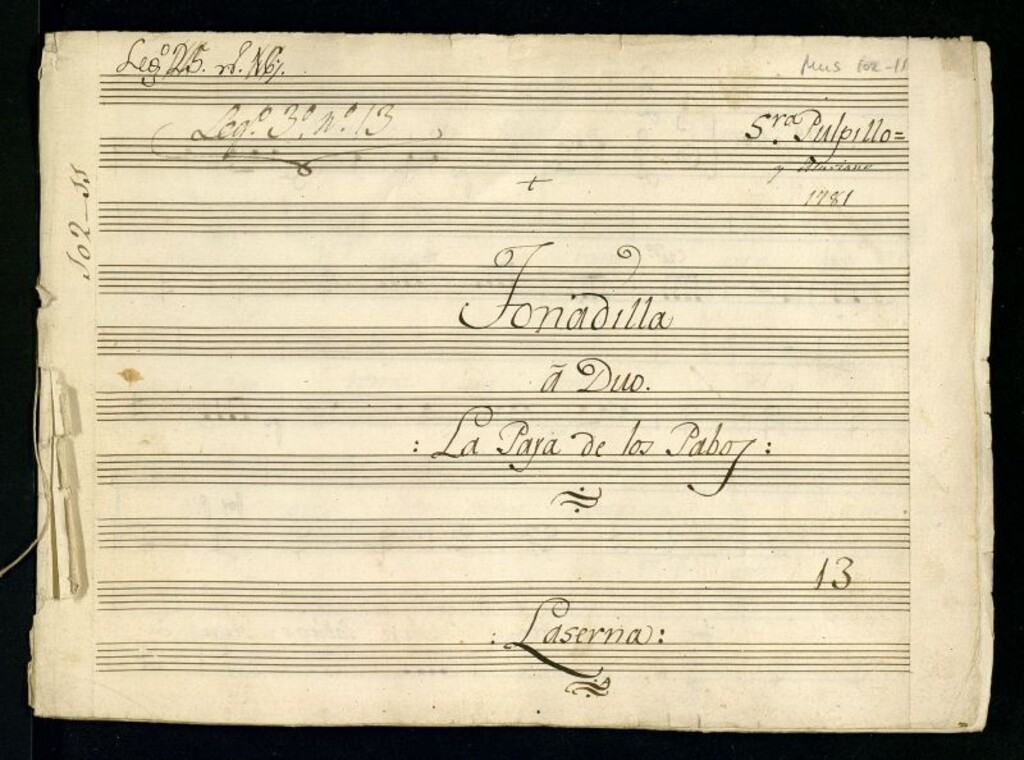 Leg.º 25. nº. 16.
Mus 502-11
Leg.º 3.º n.º 13
S.ra Pulpillo=
y Mariano
1781
502-55
+
Tonadilla
â Duo.
: La Paya de los Pabos :
13
: Laserna :